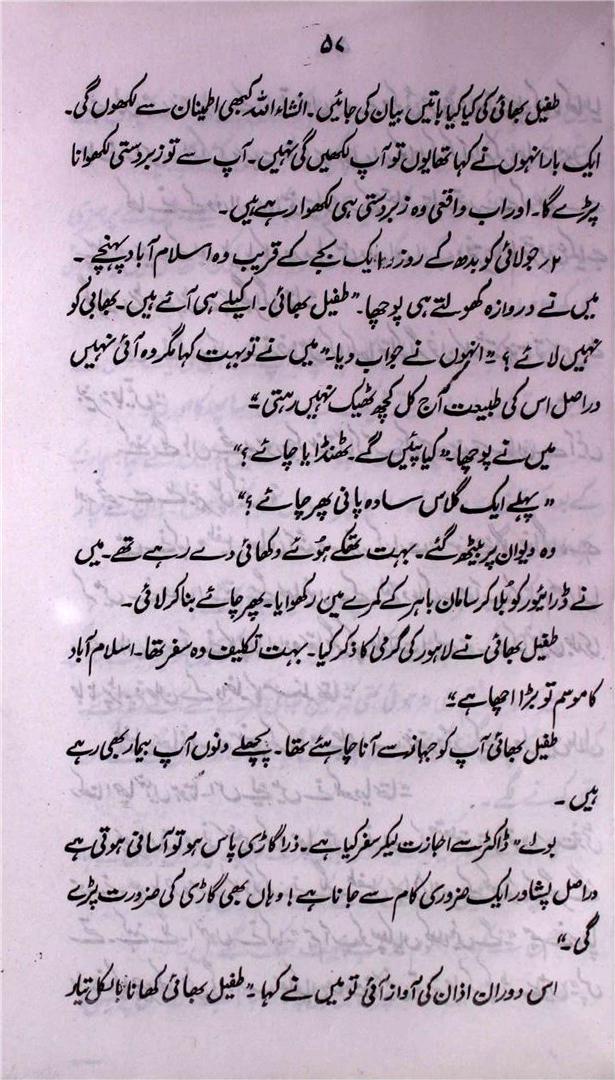 ۵۷
طفیل بھائی کی کیا کیا باتیں بیان کی جائیں۔ انشاء اللہ کبھی اطمینان سے لکھوں گی۔
ایک بار انہوں نے کہا تھا یوں تو آپ لکھیں گی نہیں۔ آپ سے تو زبردستی لکھوانا
پڑے گا۔ اور اب واقعی وہ زبردستی ہی لکھوا رہے ہیں۔
۲؍ جولائی کو بدھ کے روز ایک بجے کے قریب وہ اسلام آباد پہنچے۔
میں نے دروازہ کھولتے ہی پوچھا۔ "طفیل بھائی۔ اکیلے ہی آئے ہیں۔ بھابی کو
نہیں لائے؟" انہوں نے جواب دیا۔ "میں نے تو بہت کہا مگر وہ آئی نہیں
دراصل اس کی طبیعت آج کل کچھ ٹھیک نہیں رہتی"
میں نے پوچھا۔ "کیا پئیں گے۔ ٹھنڈا یا چائے؟"
"پہلے ایک گلاس سادہ پانی پھر چائے؟"
وہ دیوان پر بیٹھ گئے۔ بہت تھکے ہوئے دکھائی دے رہے تھے۔ میں
نے ڈرائیور کو بلا کر سامان باہر کے کمرے میں رکھوایا۔ پھر چائے بنا کر لائی۔
طفیل بھائی نے لاہور کی گرمی کا ذکر کیا۔ بہت تکلیف دہ سفر تھا۔ اسلام آباد
کا موسم تو بڑا اچھا ہے"
طفیل بھائی آپ کو جہاز سے آنا چاہئے تھا۔ پچھلے دنوں آپ بیمار بھی رہے
ہیں۔
بولے "ڈاکٹر سے اجازت لیکر سفر کیا ہے۔ ذرا گاڑی پاس ہو تو آسانی ہوتی ہے
دراصل پشاور ایک ضروری کام سے جانا ہے! وہاں بھی گاڑی کی ضرورت پڑے
گی۔"
اس دوران اذان کی آواز آئی تو میں نے کہا۔ "طفیل بھائی کھانا بالکل تیار